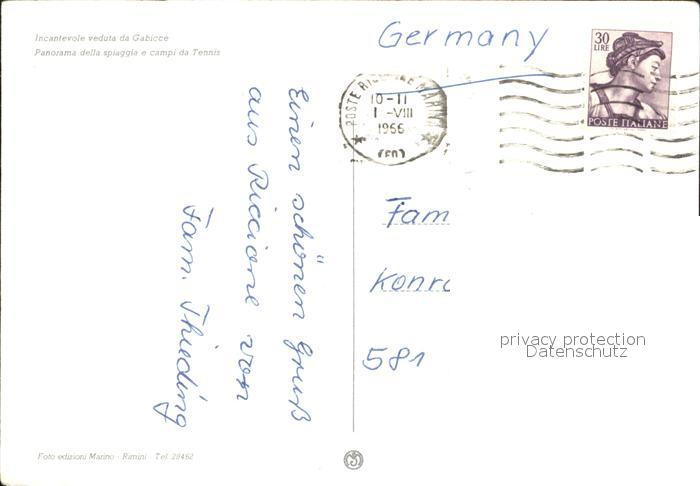 Incantevole veduta da Gabicce
Panorama della spiaggia e campi da Tennis
Germany
30
LIRE
POSTE ITALIANE
POSTE RICCIONE MARINA
10-11
1 -VIII
1966
(FO)
Einen schönen Gruß
aus Riccione von
Fam. Thieding
Fam
Konra
581
privacy protection
Datenschutz
Foto edizioni Marino - Rimini - Tel. 28462